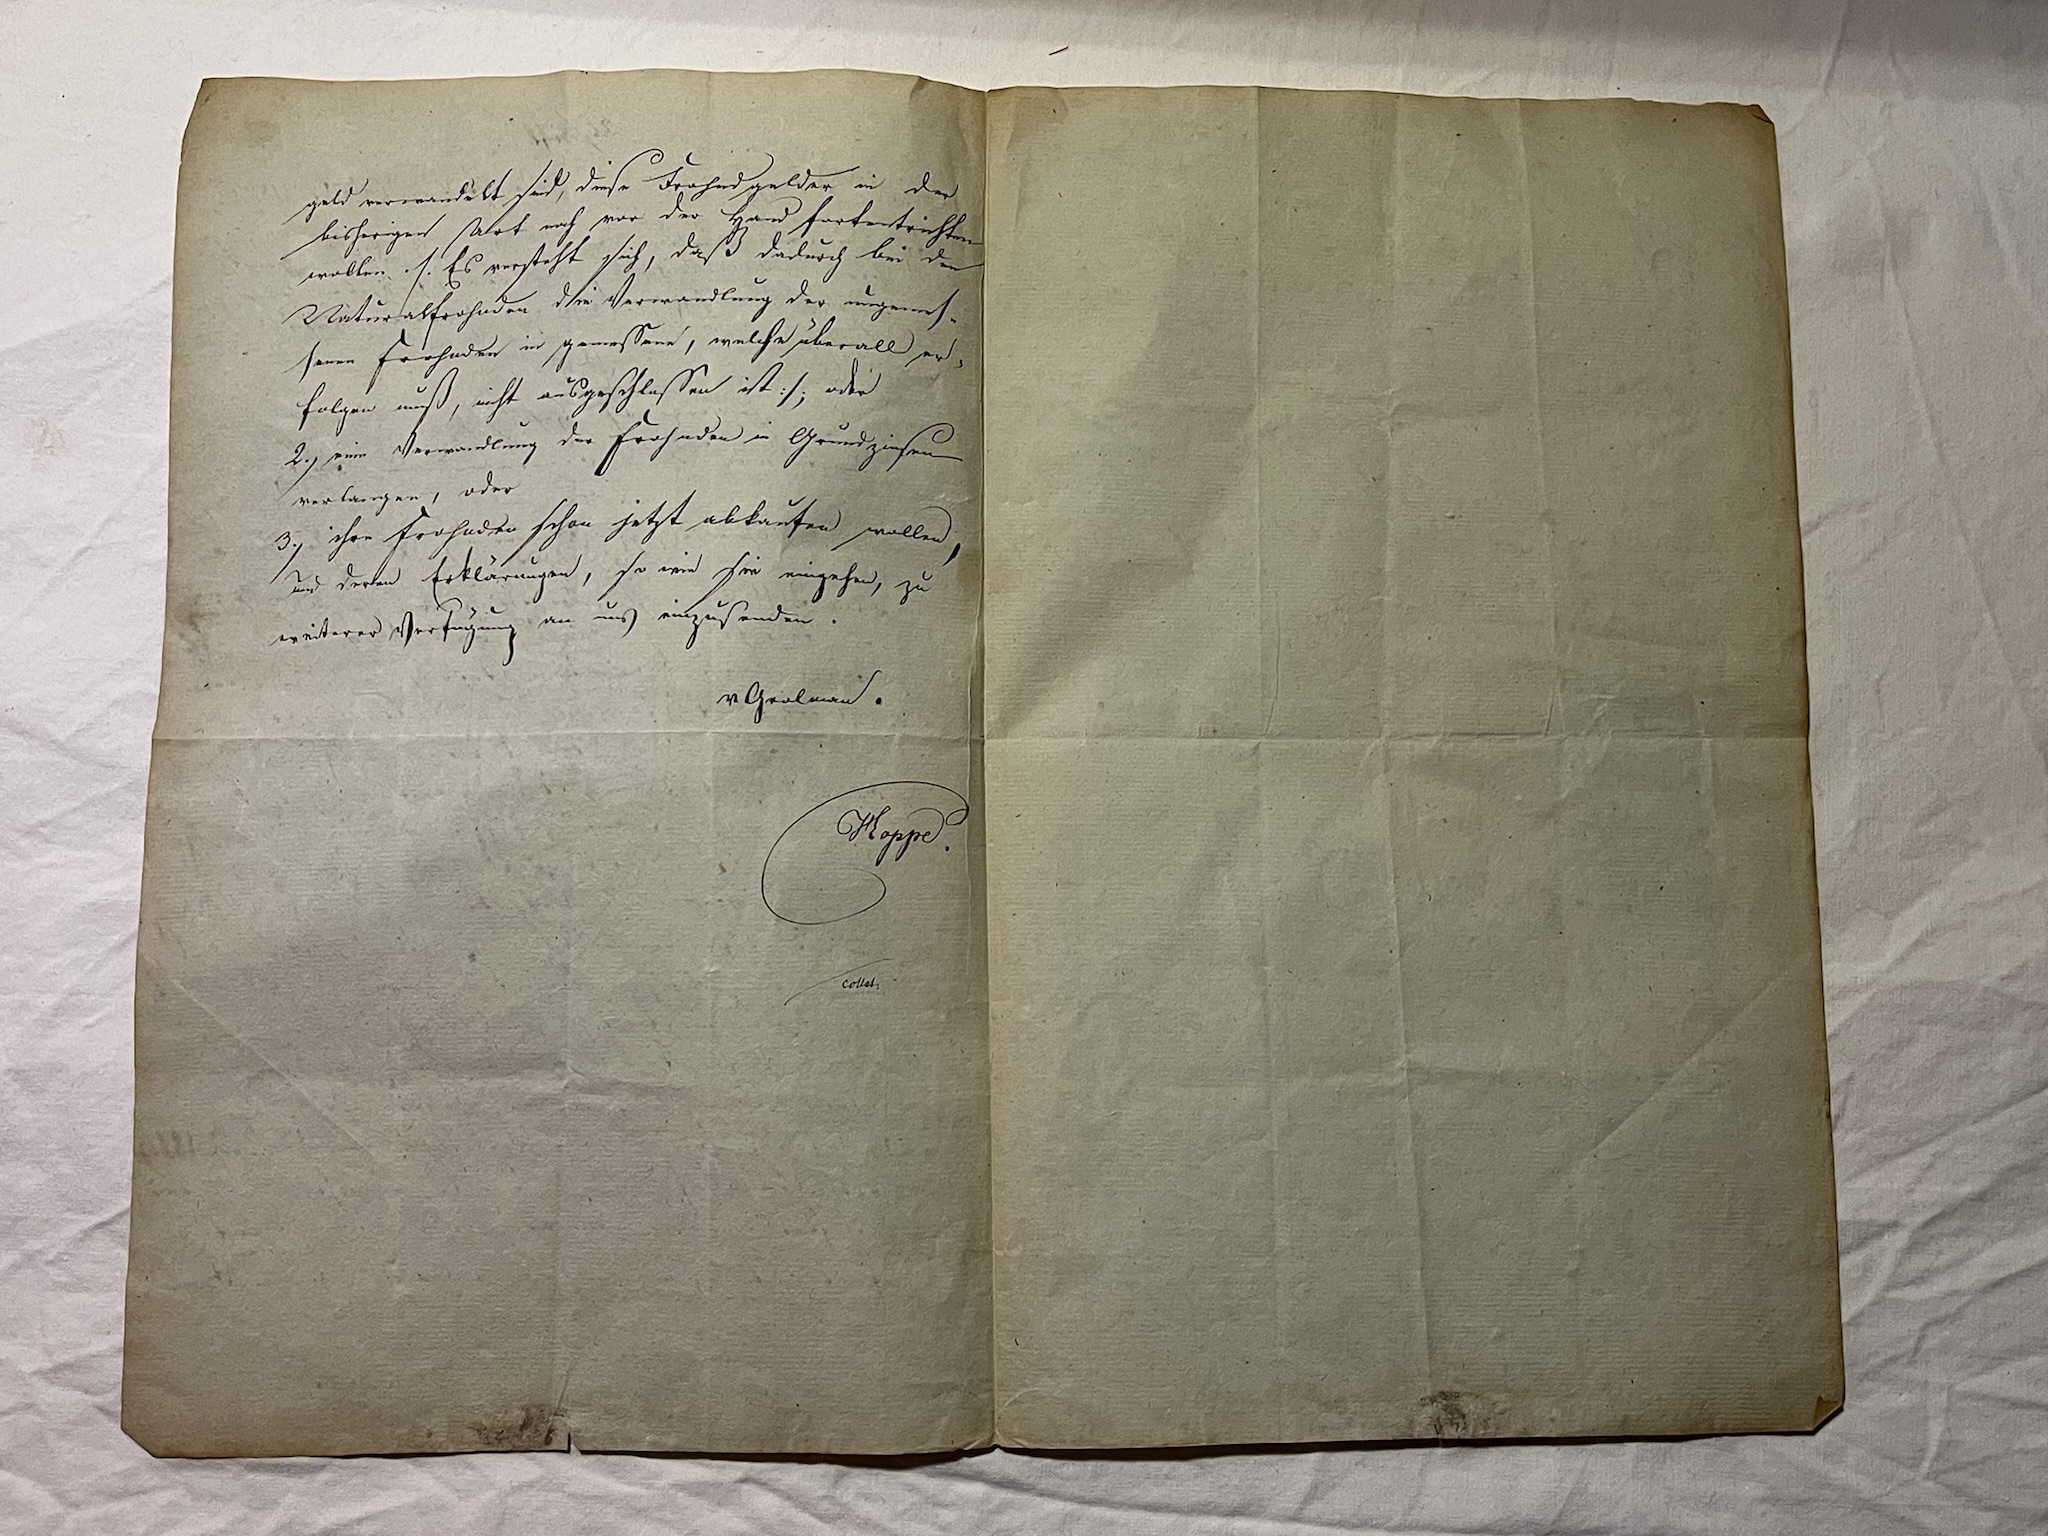 geld verwandelt sind, diese Frohndgelder in der
bisherigen Art noch vor der Hand fortentrichten
wollen. /: Es versteht sich, daß dadurch bei den
Naturalfrohnden die Verwandlung der ungemes-
senen Frohnden in gemessene, welche überall er-
folgen muß, nicht ausgeschlossen ist :/; oder
2., eine Verwandlung der Frohnden in Grundzinsen
verlangen, oder
3., ihre Frohnden schon jetzt abkaufen wollen,
und deren Erklärungen, so wie sie eingehen, zu
weiterer Verfügung an uns einzusenden.
v Grolman.
Hoppe.
collat: